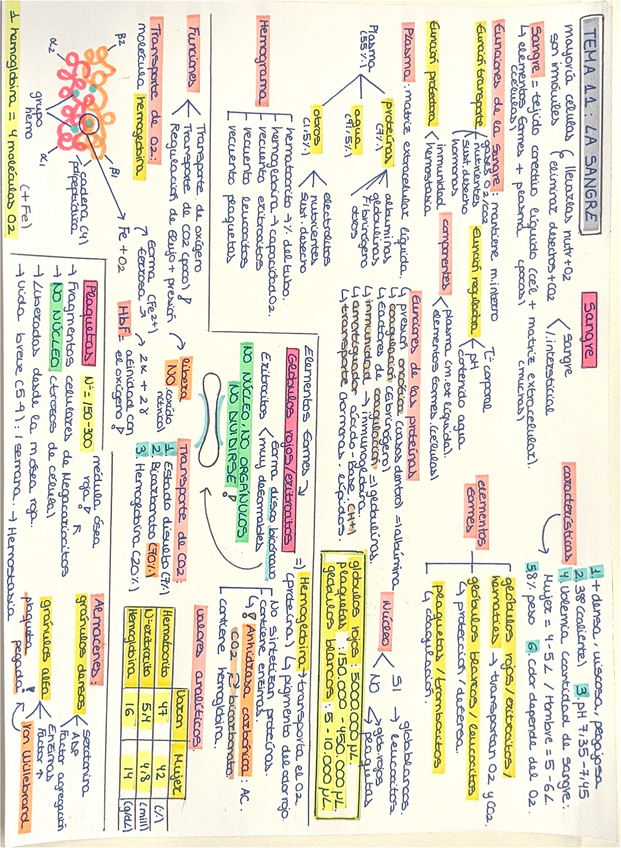 TEMA 11: LA SANGRE
mayoría células
son inmóviles
llevarlas nutr + O2
eliminar desechos + CO2
sangre
l. intersticial
Sangre
Sangre = tejido conectivo líquido (cel + matriz extracelular).
↳ elementos formes + plasma
(células)
(pocas)
(mucha)
características
1. + densa, viscosa, pegajosa
2. 38º (caliente) 3. pH 7.35-7.45
4. Volemia (cantidad de sangre):
Mujer = 4-5L / Hombre = 5-6L
5. 8% peso 6. Color depende del O2.
Funciones de la sangre: mantiene m. interno
Función transporte
gases O2/CO2
nutrientes
sust. desecho
hormonas
Función reguladora
pH
Tª corporal
contenido agua
Función protectora
inmunidad
hemostasia
componentes
plasma (m. ext líquida)
elementos formes (células)
elementos
formes
glóbulos rojos / eritrocitos /
hematíes → transportan O2 y CO2.
glóbulos blancos / leucocitos
↳ protección / defensa
plaquetas / trombocitos
↳ coagulación.
Plasma: matriz extracelular líquida.
Plasma
(55%)
proteínas
(7%)
albúminas
globulinas
fibrinógeno
otros
agua
(91'5%)
otros
(1'5%)
electrolitos
nutrientes
sust. desecho
Funciones de las proteínas
↳ presión oncótica (cosas dentro) = (albúmina
↳ coagulación (fibrinógeno)
↳ factores de coagulación = (globulinas.
↳ inmunidad → inmunoglobulinas
↳ amortiguador ácido-base (H+)
↳ transporte (hormonas, lípidos.
Núcleo
SI → glob blancos.
leucocitos
NO → glob rojos
plaquetas
glóbulos rojos: 5000.000 µL
plaquetas: 150.000 - 450.000 µL
glóbulos blancos: 5 - 10.000 µL
Hemograma
hematocrito → % del tubo.
hemoglobina → capacidad O2.
recuento eritrocitos
recuento leucocitos
recuento plaquetas
Elementos formes →
Glóbulos rojos / eritrocitos
Eritrocitos
forma disco bicóncavo
muy deformables
NO NÚCLEO, NO ORGÁNULOS
NO DIVIDIRSE!
= Hemoglobina → transporta el O2
(proteína) ↳ pigmento da color rojo
No sintetizan proteínas.
contiene enzimas.
Anhidrasa carbónica: AC.
CO2 ⇄ bicarbonato
contiene hemoglobina.
Funciones
Transporte de oxígeno
Transporte de CO2 (poco)
Regulación de flujo + presión
libera
NO (óxido
nítrico)
Transporte de O2:
molécula hemoglobina
β2
β1
α2
α1
grupo
hemo
(+Fe)
cadena (4)
polipeptídica
Fe + O2
forma (Fe2+)
ferroso
2α + 2γ
HbF = afinidad con
el oxígeno
1 hemoglobina = 4 moléculas O2
Transporte de CO2:
1. Estado disuelto (7%)
2. Bicarbonato (70%)
3. Hemoglobina (20%)
valores analíticos
Varón Mujer
Hematocrito 47 42 (%)
Nº eritrocito 5.4 4.8 (mill)
Hemoglobina 16 14 (g/dL)
Plaquetas
Nº = 150-300
médula ósea
roja!
→ Fragmentos celulares de megacariocitos
→ NO NÚCLEO (trozos de célula)
→ Liberadas desde la m ósea roja.
→ Vida breve (5-9): 1 semana. → Hemostasia
Almacenes:
gránulos densos
serotonina
ADP
gránulos alfa
Factor agregación
Enzimas
Factor
plaqueta pegada
Von Willebrand